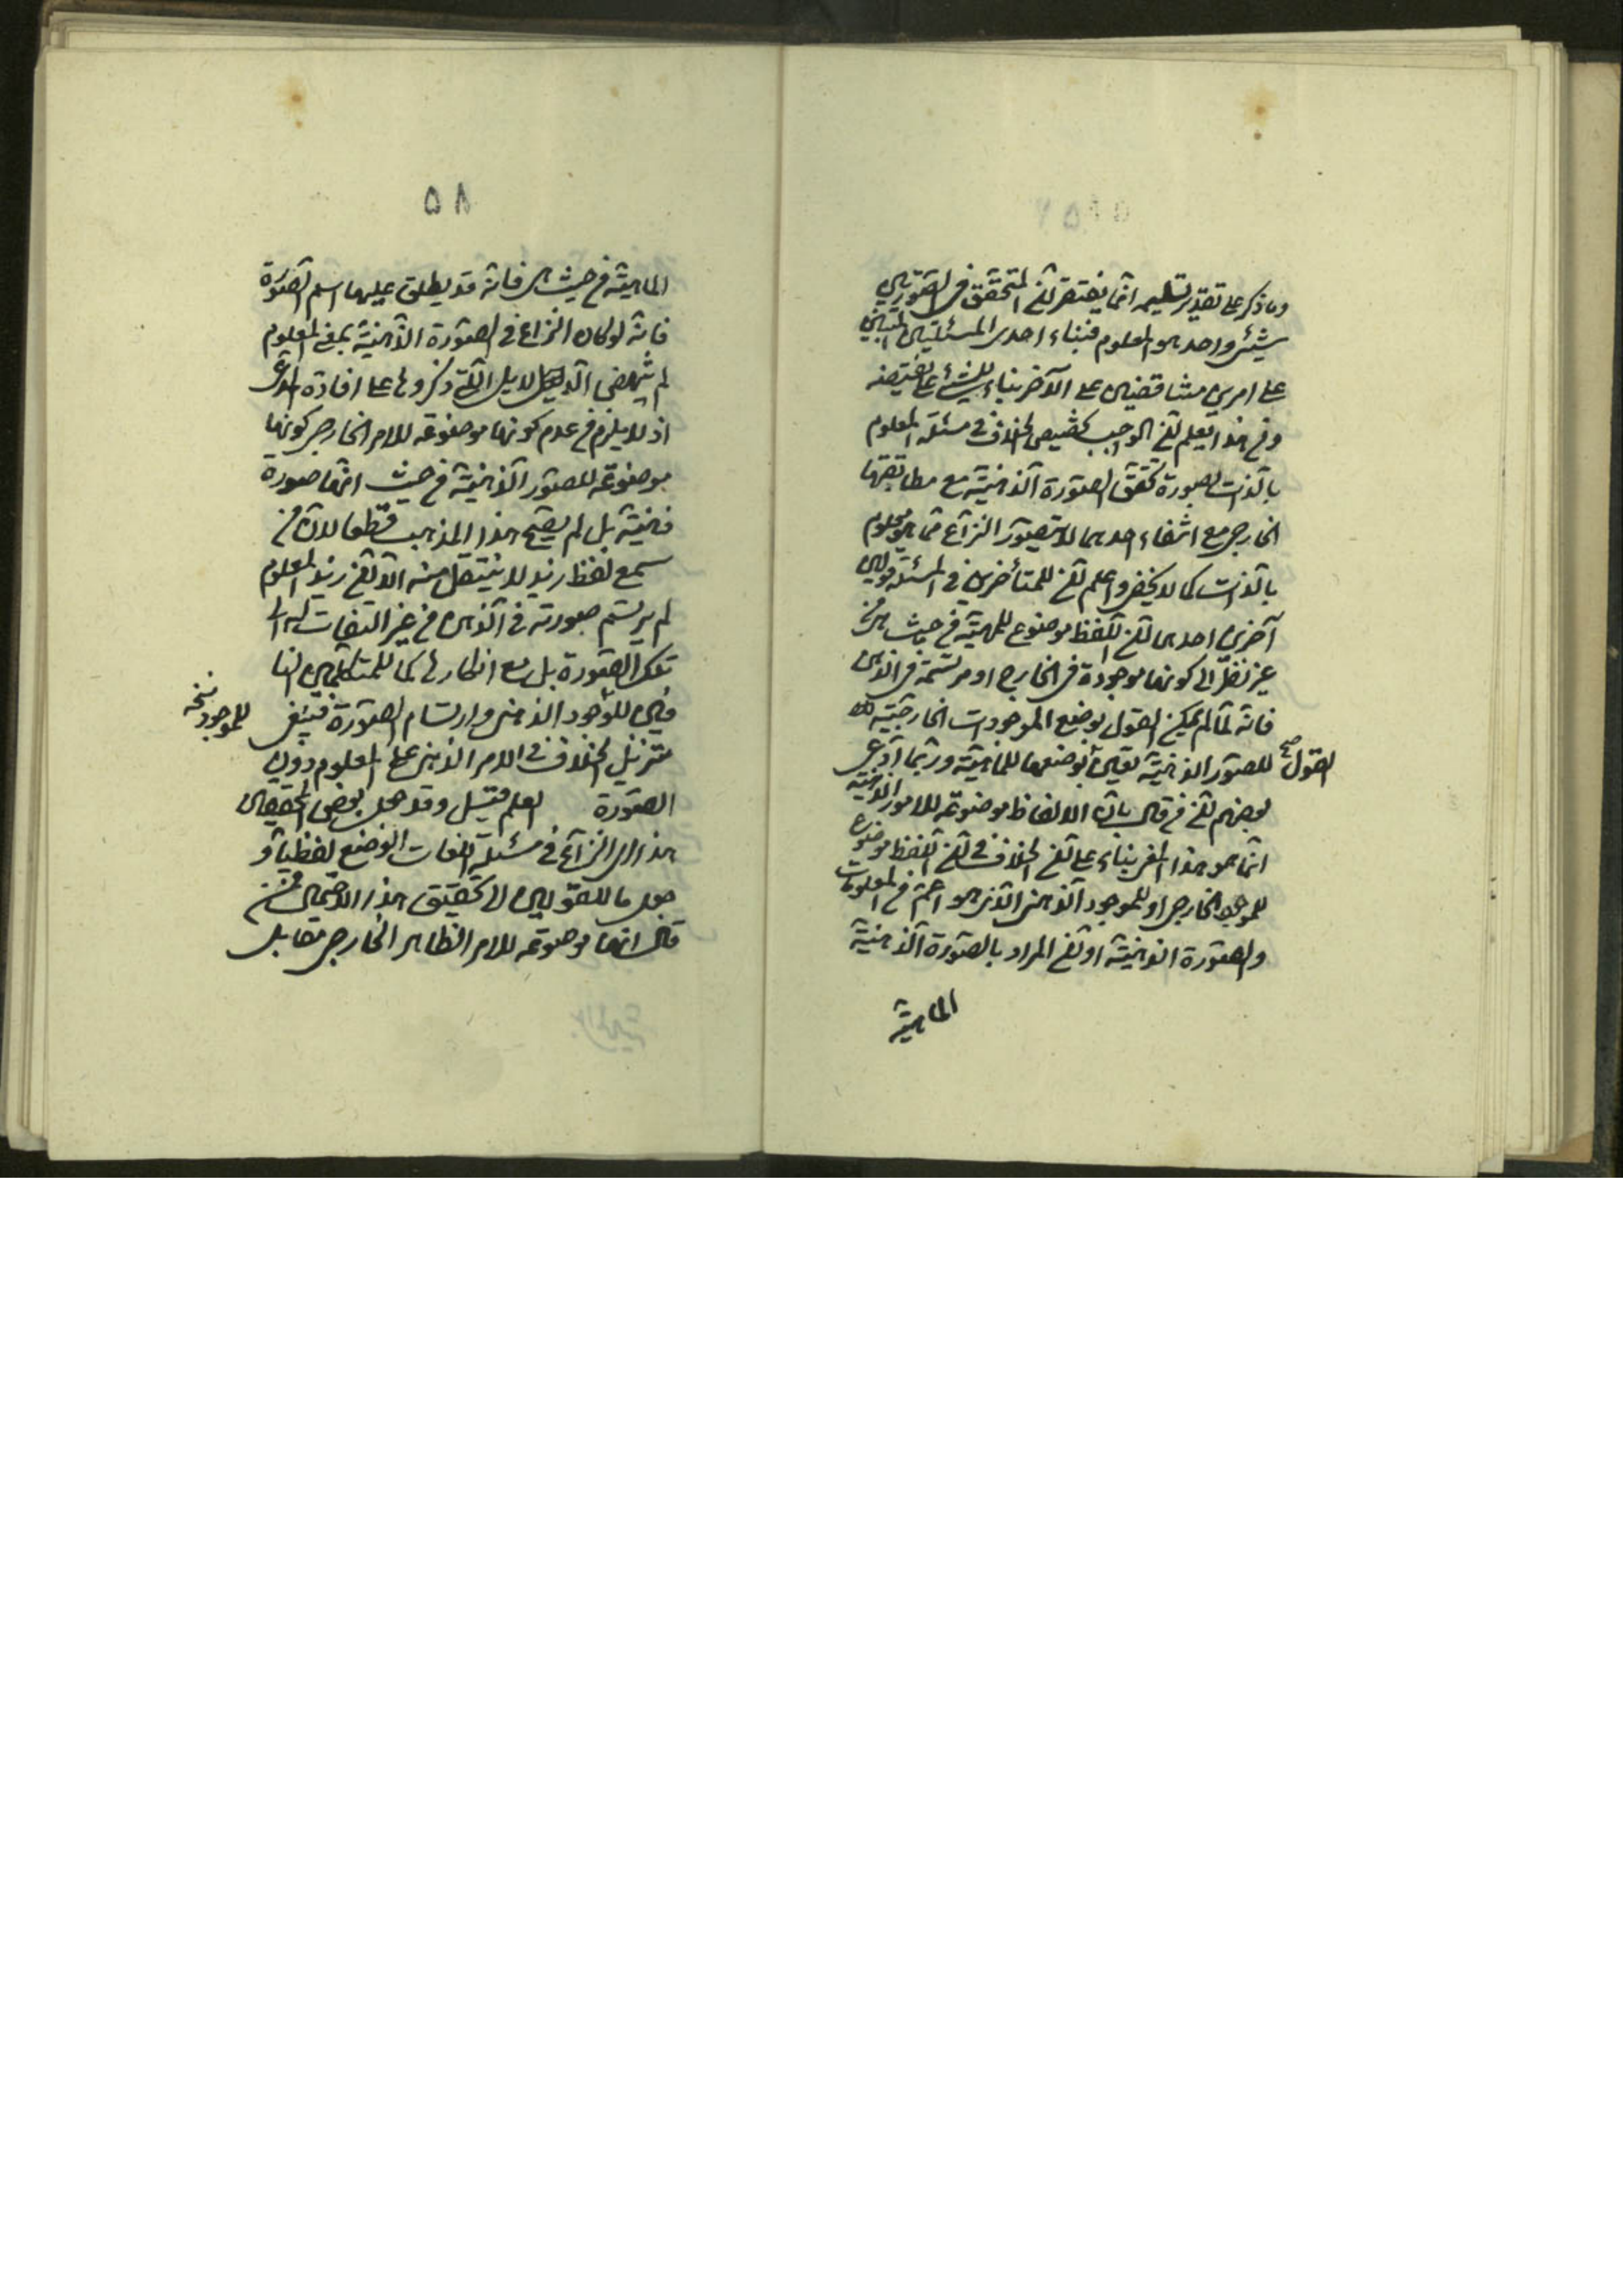 وما ذكر على تقدير تسليمه انما يقتضى انّ المتحقق فى الصّورتين
شيئ واحد هو المعلوم فبناء احدى المسئلتين المبنيتين
على امرين متناقضين على الآخر بناء للشئ على نقيضه
ومن هذا يعلم انّ الواجب تخصيص الخلاف فى مسئلة المعلوم
بالذات بصورة تحقق الصّورة الذّهنيّة مع مطابقها
الخارجى مع انتفاء احدهما لا يتصوّر النزاع فيما هو معلوم
بالذات كما لا يخفى واعلم انّ للمتأخرين فى المسئلة قولين
آخرين احدهما انّ اللّفظ موضوع للمهيّة من حيث هى من
غير نظر الى كونها موجودة فى الخارج او مرتسمة فى الذهن
فانّه لمّا لم يمكن القول بوضع الموجودات الخارجيّة ولا
القول صح
للصّور الذهنيّة تعيّن وضعها للماهيّة وربّما ادّعى
بعضهم انّ من قال بانّ الالفاظ موضوعة للامور الذهنيّة
انّما هو هذا المعنى بناء على انّ الخلاف فى انّ اللّفظ موضوع
للموجود الخارجى او للموجود الذّهنى الذى هو اعمّ من المعلومات
والصّورة الذهنيّة او انّ المراد بالصّورة الذّهنيّة
الماهيّة
٥٨
الماهيّة من حيث هى فانّه قد يطلق عليها اسم الصّورة
فانّه لو كان النزاع فى الصّورة الذّهنيّة بمعنى المعلوم
لم ينهض الدلايل الّتى ذكروها على افادة المدّعى
اذ لا يلزم من عدم كونها موضوعة للامر الخارجى كونها
موضوعة للصّور الذّهنيّة من حيث انّها صورة
ذهنيّة بل لم يصحّ هذا المذهب قطعا لانّ من
سمع لفظ زيد لا ينتقل منه الّا الى زيد المعلوم
لم يرتسم صورته فى الذّهن من غير التفات الى
تلك الصّورة بل مع انكارها كما للمتكلّمين النا
فين للوجود الذهنى وارتسام الصّورة فينبغى
للموجود نسخه
تنزيل الخلاف فى الامر الذهنى على المعلوم دون
الصّورة العلم فتيسل وقد جعل بعض المحققين
هذا النزاع فى مسئلة اللغات الوضع لفظيا و
جعل مآل القولين الى تحقيق هذا الاحتمال فمن
قال انها موضوعة للامر الظاهر الخارجى مقابل